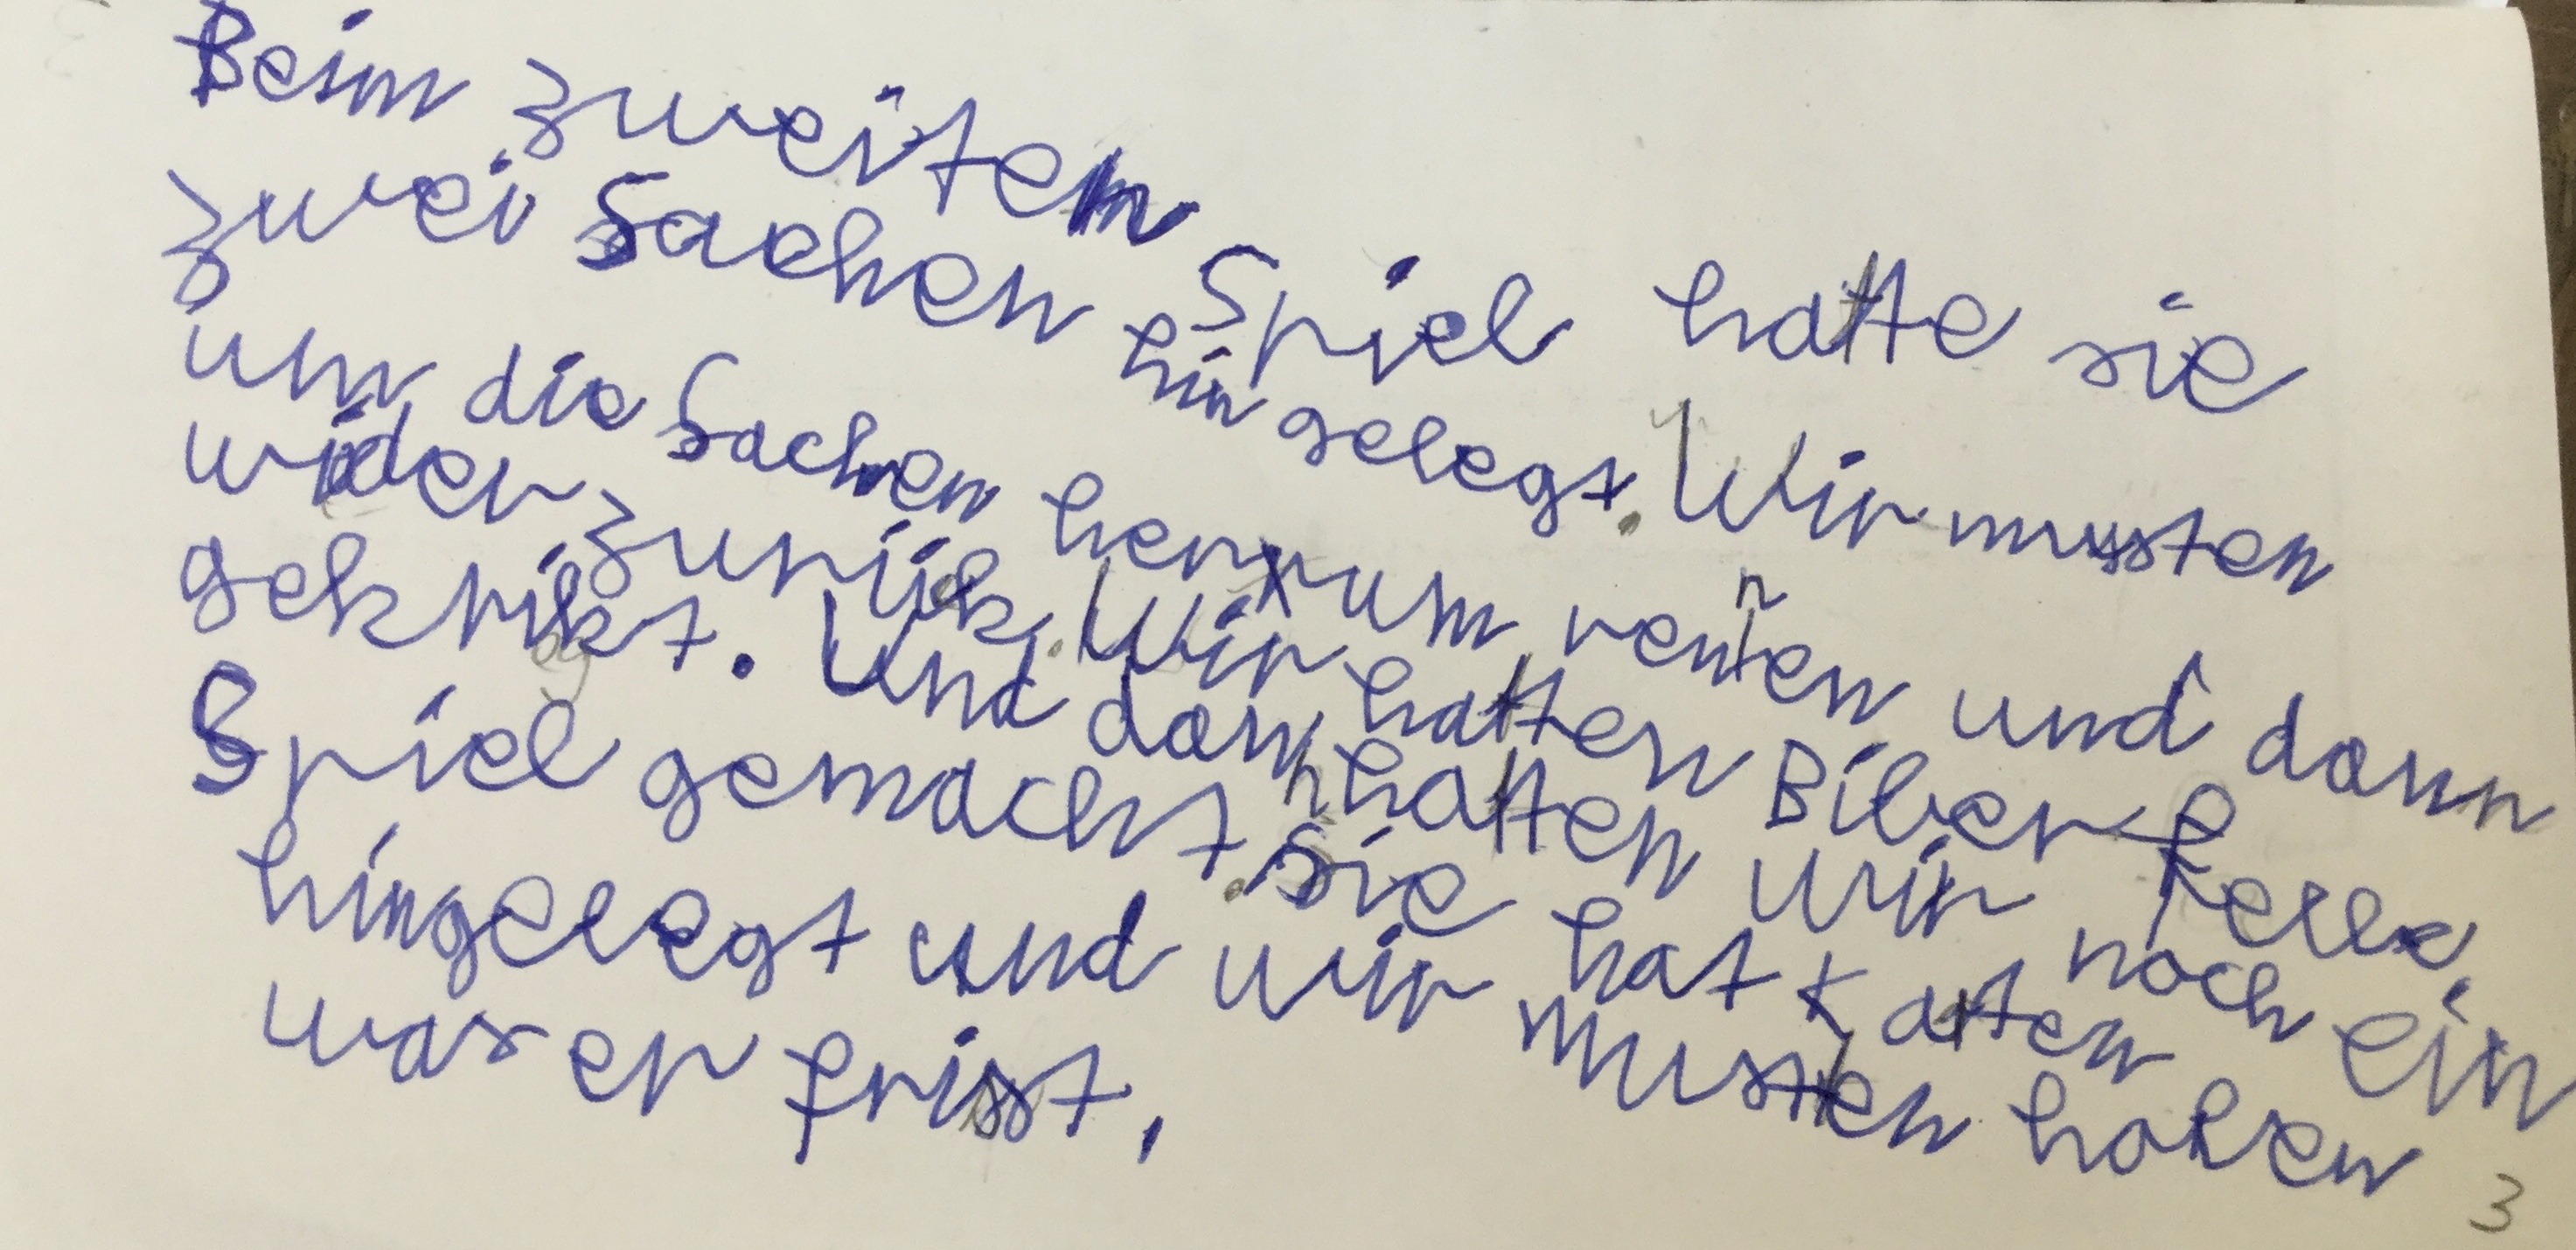 Beim zweitem Spiel hatte sie
zwei Sachen hin gelegt. Wir musten
um die Sachen herrum rennen und dann
wider zurück. Wir hatten Biber Felle
gekrikt. Und dann hatten wir noch ein
Spiel gemacht. Sie hat Karten
hingelegt und wir musten holen
was er frisst.
3